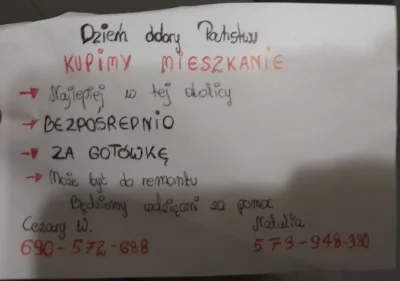 Dzień dobry Państwu
KUPIMY MIESZKANIE
→ Najlepiej w tej okolicy
→ BEZPOŚREDNIO
→ ZA GOTÓWKĘ
→ Może być do remontu
Będziemy wdzięczni za pomoc
Cezary W. Natalia
690-572-688 573-948-390